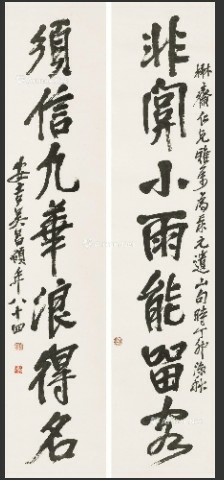 非関小雨能留客
楙齋仁兄雅屬爲集元遺山句時丁卯深秋
須信九華浪得名
安吉吳昌碩年八十四